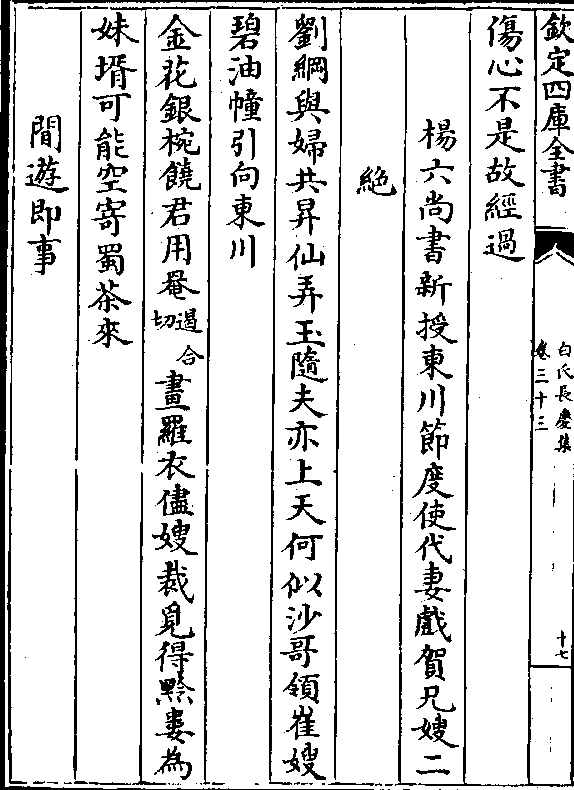 欽定四庫全書
白氏長慶集
卷三十三
十七
傷心不是故經過
楊六尚書新授東川節度使代妻戲賀兄嫂二
絶
劉綱與婦共昇仙弄玉隨夫亦上天何似沙哥領崔嫂
碧油幢引向東川
金花銀椀饒君用罨遏合切畫羅衣儘嫂裁覓得黔婁為
妹壻可能空寄蜀茶來
間遊即事